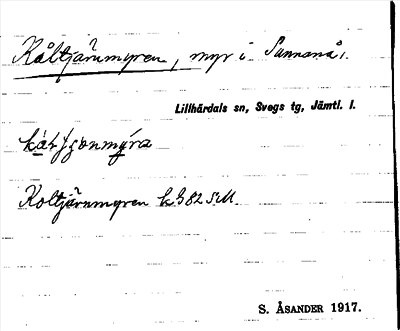 Kåltjärnmyren, myr i Sunnanå.
Lillhärdals sn, Svegs tg, Jämtl. l.
Koltjärnmyren k.b 82 SM
S. ÅSANDER 1917.